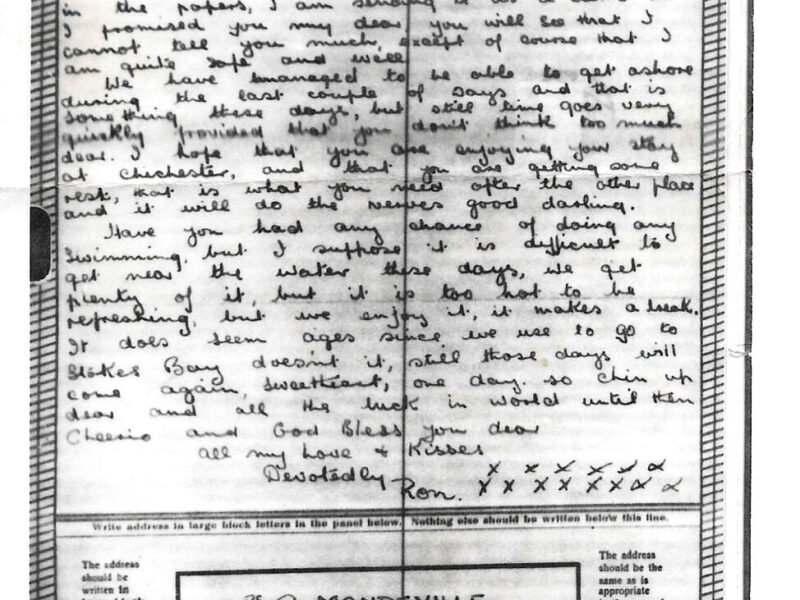 in the papers, I am sending it as a
I promised you my dear you will see that I
cannot tell you much, except of course that I
am quite safe and well
We have managed to be able to get ashore
during the last couple of days and that is
something these days, but still time goes very
quickly provided that you don't think too much
dear. I hope that you are enjoying your stay
at Chichester, and that you are getting some
rest, that is what you need after the other place
and it will do the nerves good darling.
Have you had any chance of doing any
swimming, but I suppose it is difficult to
get near the water these days, we get
plenty of it, but it is too hot to be
refreshing, but we enjoy it, it makes a break.
It does seem ages since we use to go to
Stokes Bay doesn't it, still those days will
come again, sweetheart, one day. so chin up
dear and all the luck in world until then
Cheerio and God Bless you dear
all my Love & Kisses
Devotedly
Ron.
x x x x x x
x x x x x x x x
Write address in large block letters in the panel below. Nothing else should be written below this line.
The address
should be
written in
The address
should be the
same as is
appropriate
MANDEVILLE